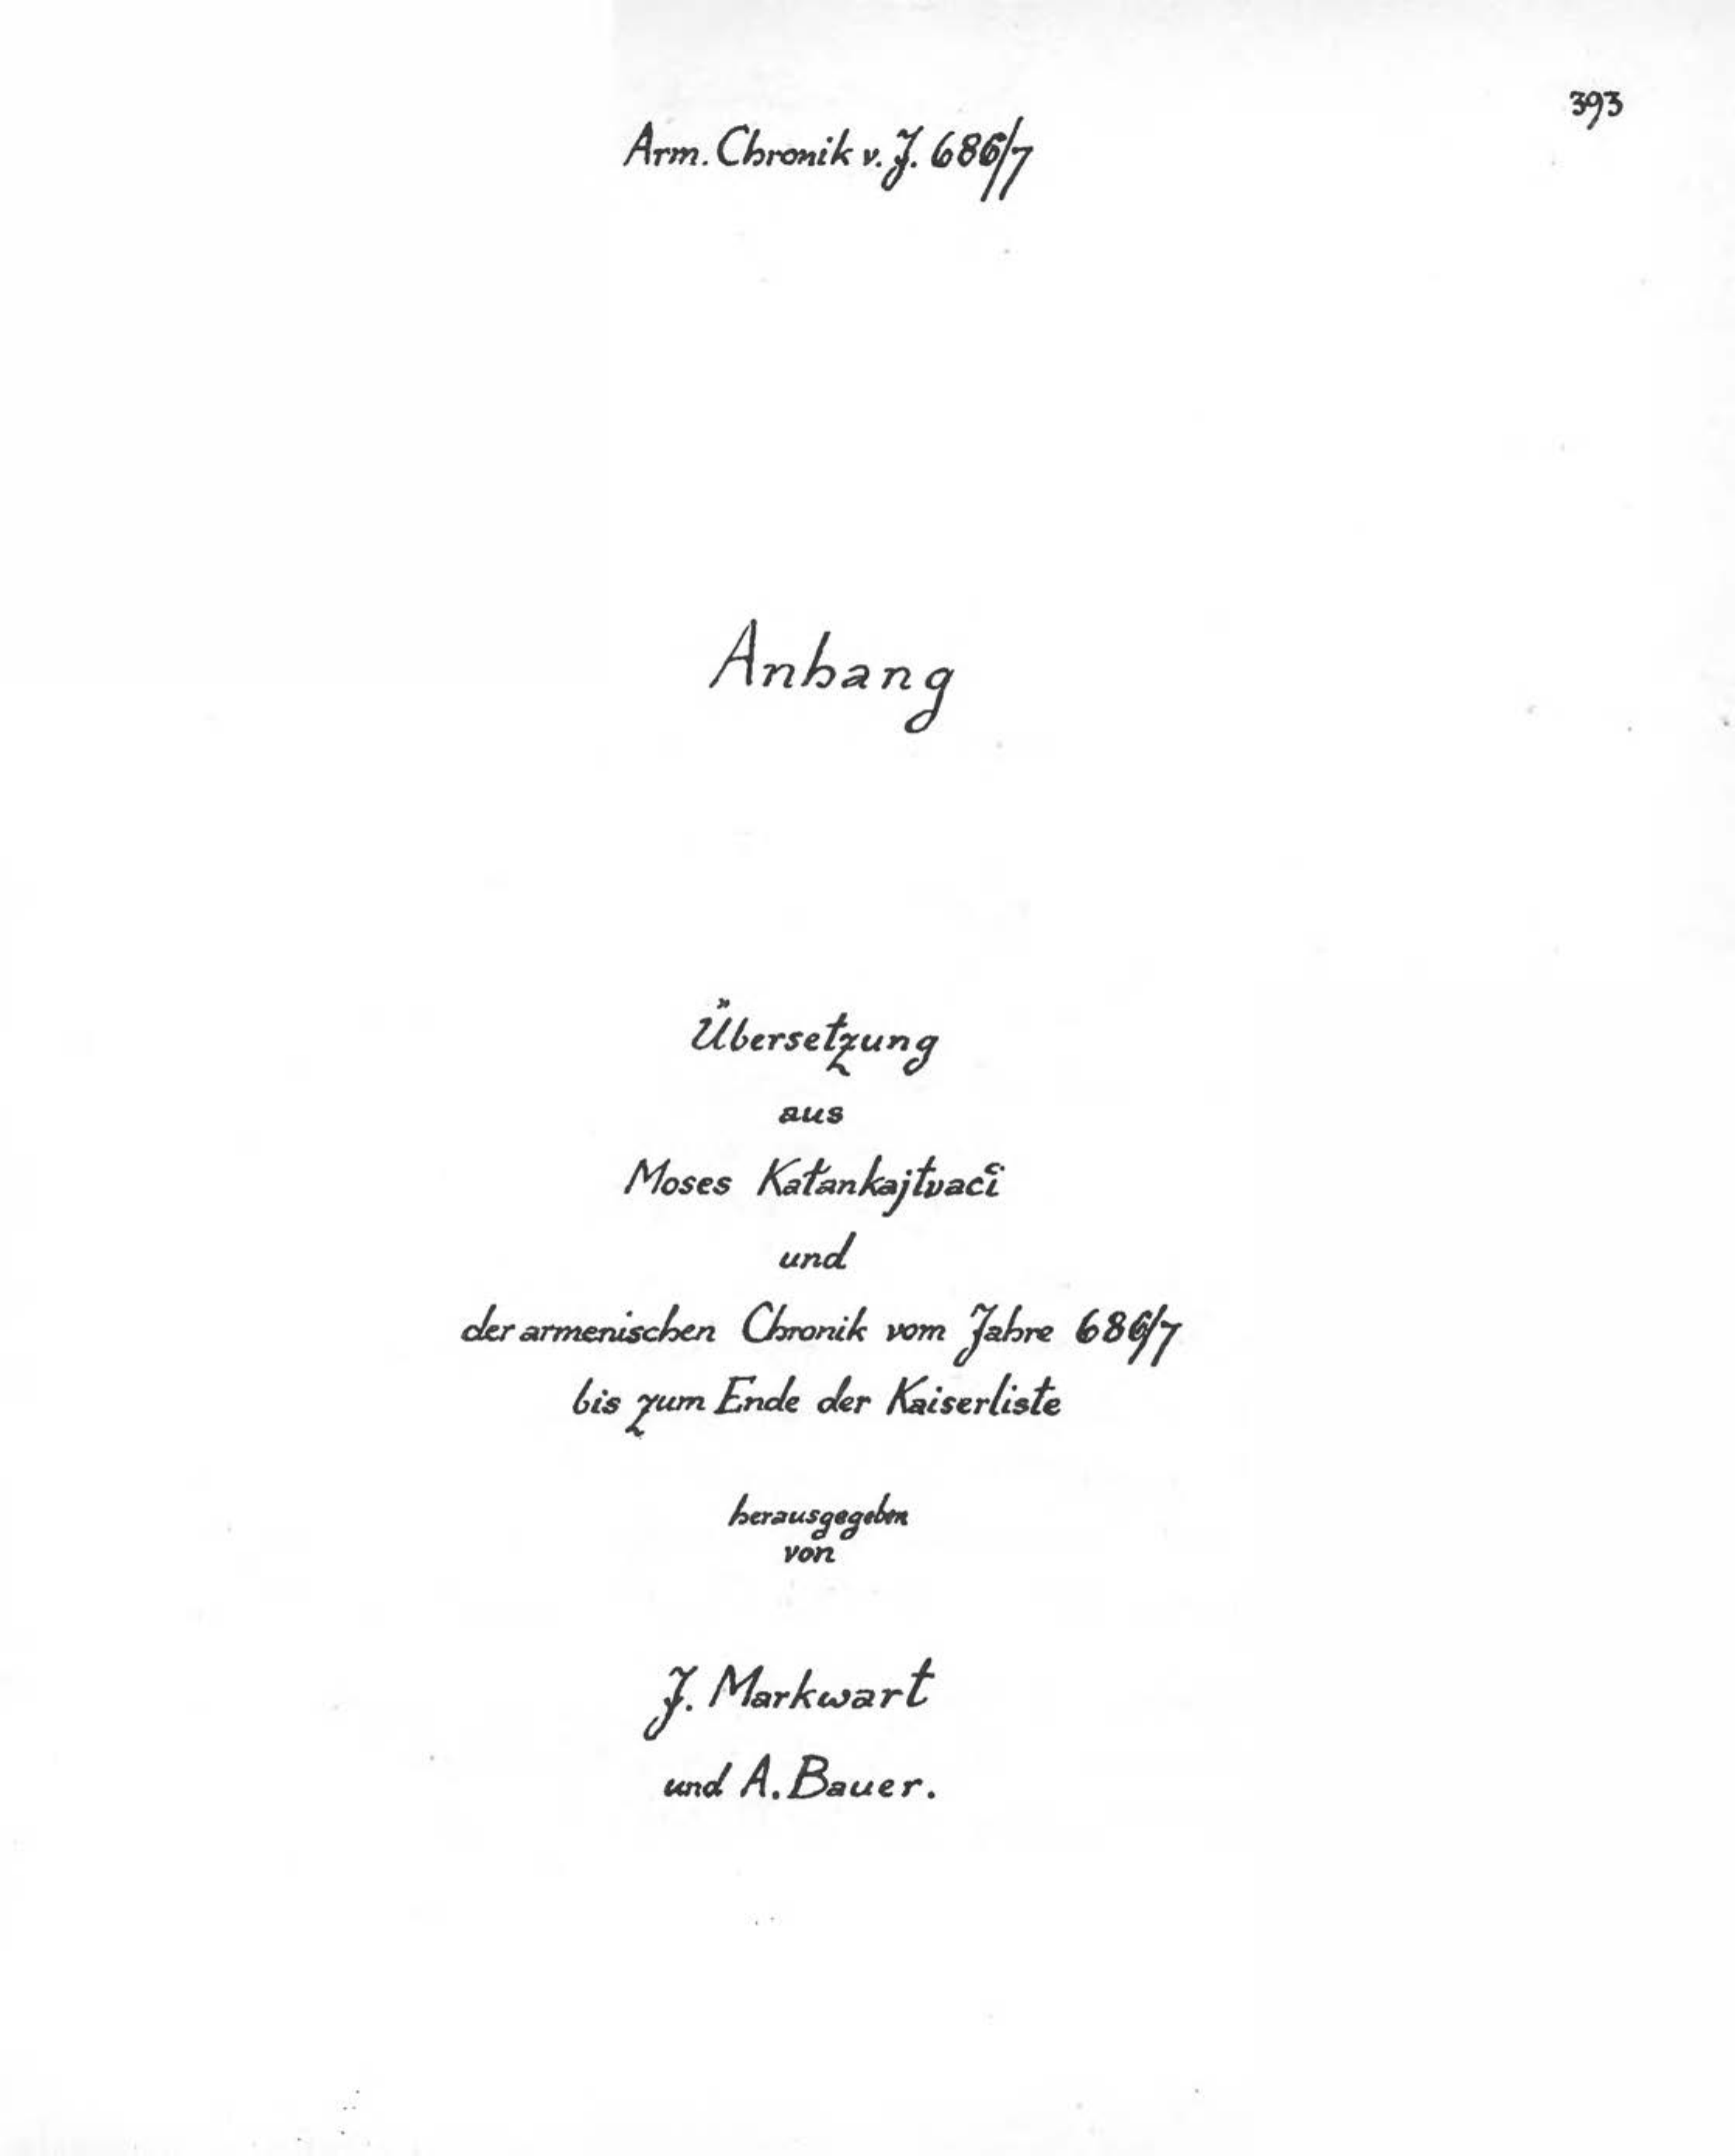 393
Arm. Chronik v. J. 686/7
Anhang
Übersetzung
aus
Moses Kałankajtvacʿi
und
der armenischen Chronik vom Jahre 686/7
bis zum Ende der Kaiserliste
herausgegeben
von
J. Markwart
und A. Bauer.